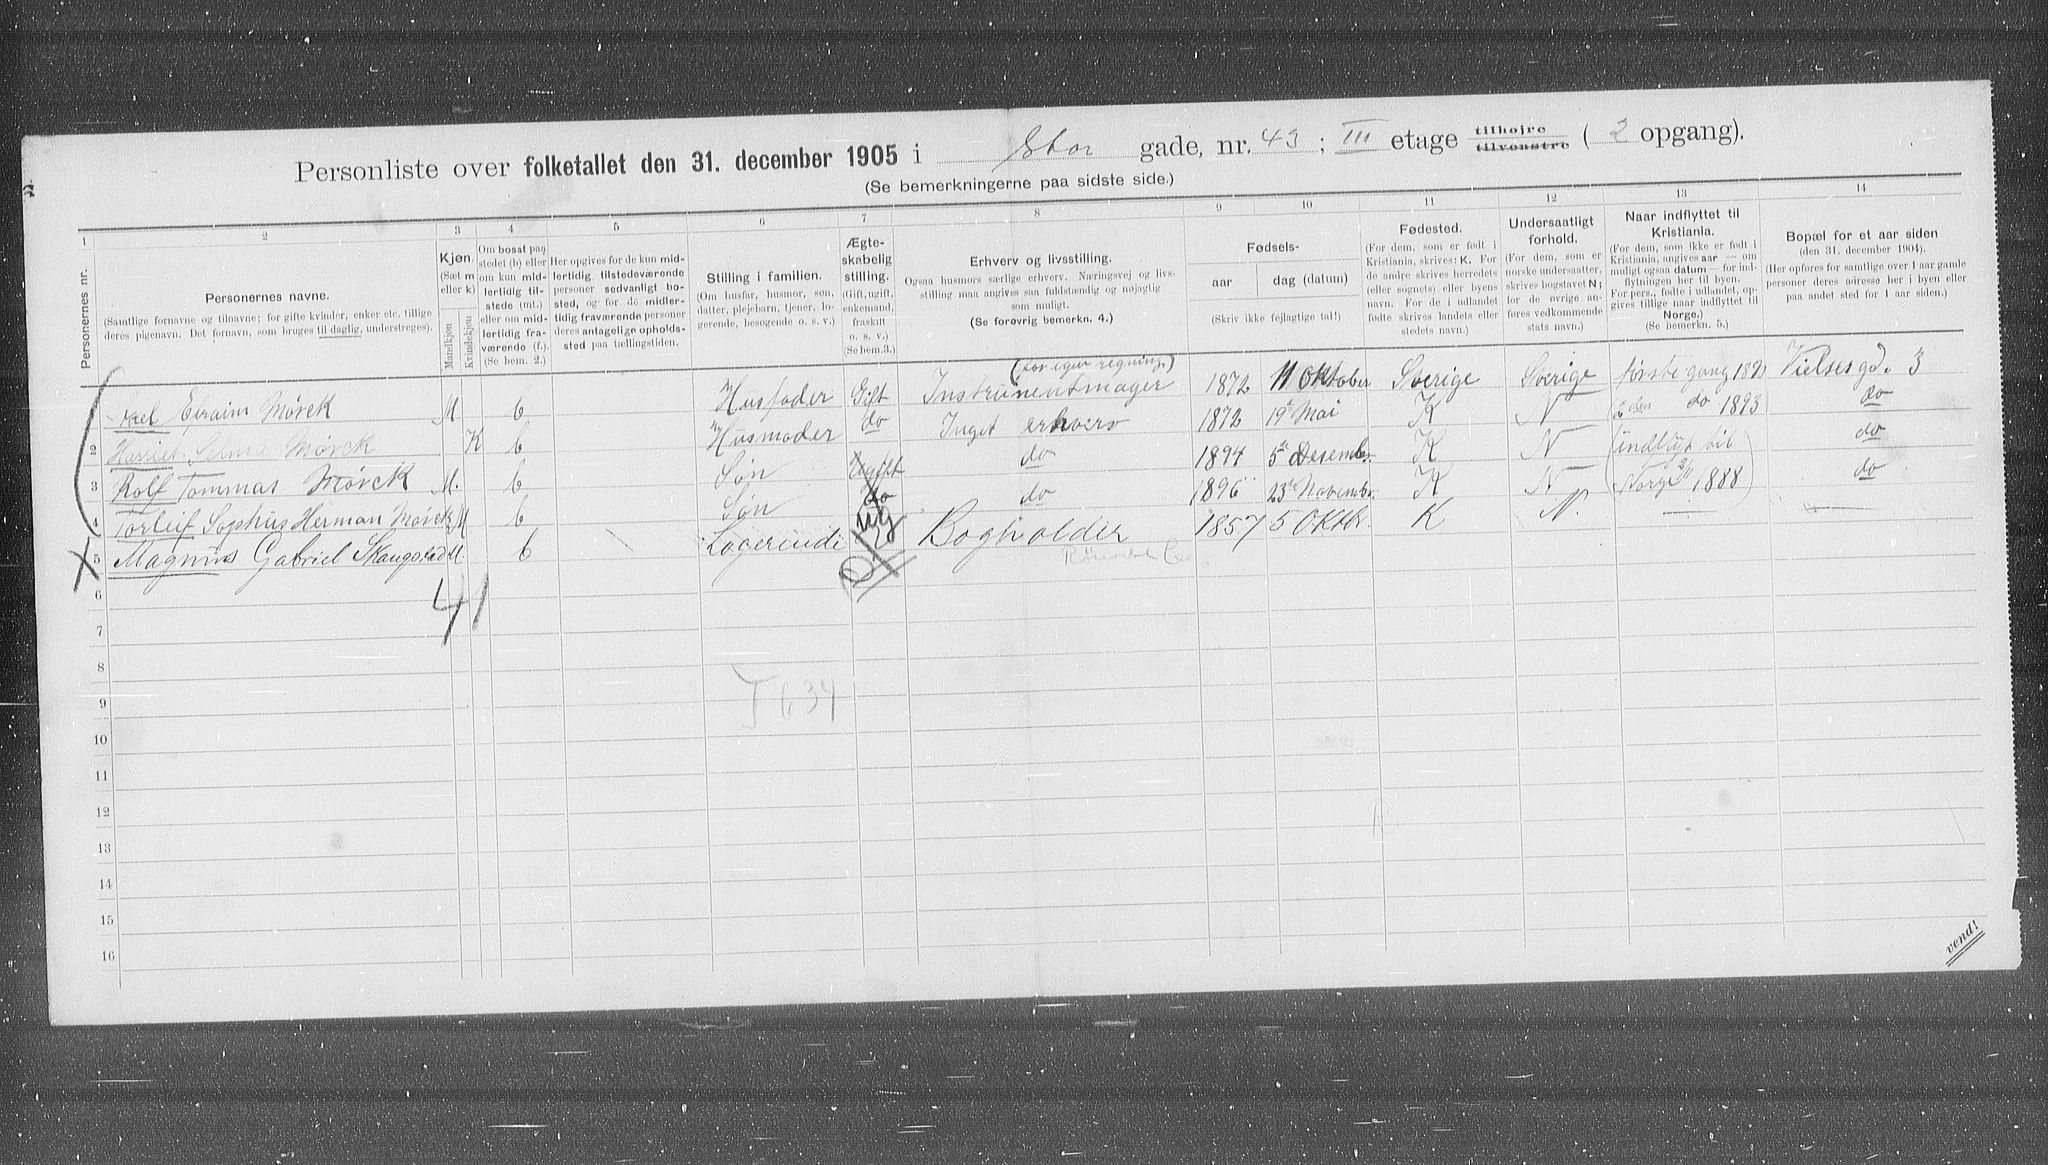 Personliste over folketallet den 31. december 1905 i Stor gade, nr. 43 ; III etage tilhøjre tilvenstre ( 2 opgang).
(Se bemerkningerne paa sidste side.)
1 2 3 4 5 6 7 8 9 10 11 12 13 14
Personernes nr.
Personernes navne.
(Samtlige fornavne og tilnavne; for gifte kvinder, enker etc. tillige
deres pigenavn. Det fornavn, som bruges til daglig, understreges).
Kjøn.
(Sæt m
eller k)
Mandkjøn
Kvindekjøn
Om bosat paa
stedet (b) eller
om kun mid-
lertidig til-
stede (mt.)
eller om mid-
lertidig fra-
værende (f.)
(Se bem. 2.)
Her opgives for de kun mid-
lertidig tilstedeværende
personer sedvanligt bo-
sted, og for de midler-
tidig fraværende personer
deres antagelige opholds-
sted paa tællingstiden.
Stilling i familien.
(Om husfar, husmor, søn,
datter, plejebarn, tjener, lo-
gerende, besøgende o. s. v.)
Ægte-
skabelig
stilling.
(Gift, ugift,
enkemand,
fraskilt
o. s. v.)
(Se bem.3.)
Erhverv og livsstilling.
Ogsaa husmors særlige erhverv. Næringsvej og livs-
stilling maa angives saa fuldstændig og nøjagtig
som muligt.
(Se forøvrig bemerkn. 4.)
Fødsels-
aar dag (datum)
(Skriv ikke fejlagtige tal!)
Fødested.
(For dem, som er født i
Kristiania, skrives: K. For
de andre skrives herredets
(eller sognets) eller byens
navn. For de i udlandet
fødte skrives landets eller
stedets navn.)
Undersaatligt
forhold.
(For dem, som er
norske undersaatter,
skrives bogstavet N;
for de øvrige an-
føres vedkommende
stats navn.)
Naar indflyttet til
Kristiania.
(For dem, som ikke er født i
Kristiania, angives aar — om
muligt ogsaa datum — for ind-
flytningen her til byen.
For pers., fødte i udlandet, op-
gives tillige naar indflyttet til
Norge.)
(Se bemerkn. 5.)
Bopæl for et aar siden
(den 31. december 1904).
(Her opføres for samtlige over 1 aar gamle
personer deres adresse her i byen eller
paa andet sted for 1 aar siden.)
(for egen regning)
Axel Efraim Mørck M b Husfader Gift Instrumentmager 1872 11 Oktober Sverige Sverige første gang 3
2 Harriet Selma Mørck K b Husmoder do Inget erhverv 1872 19de Mai K N do 1893) do
3 Rolf Tommas Mørck M. b Søn Ugift do 1894 5te Desembr. K N (indflyt til do
4 Torleif Sophus Herman Mørck M b Søn do do 1896 23de Novembr. K N Norge 1888) do
5 Magnus Gabriel M b Logerende ug Bogholder 1857 5 Oktbr. K N. — —
6
41
7
8
T 634
9
10
11
12
13
14
15
16
vend!